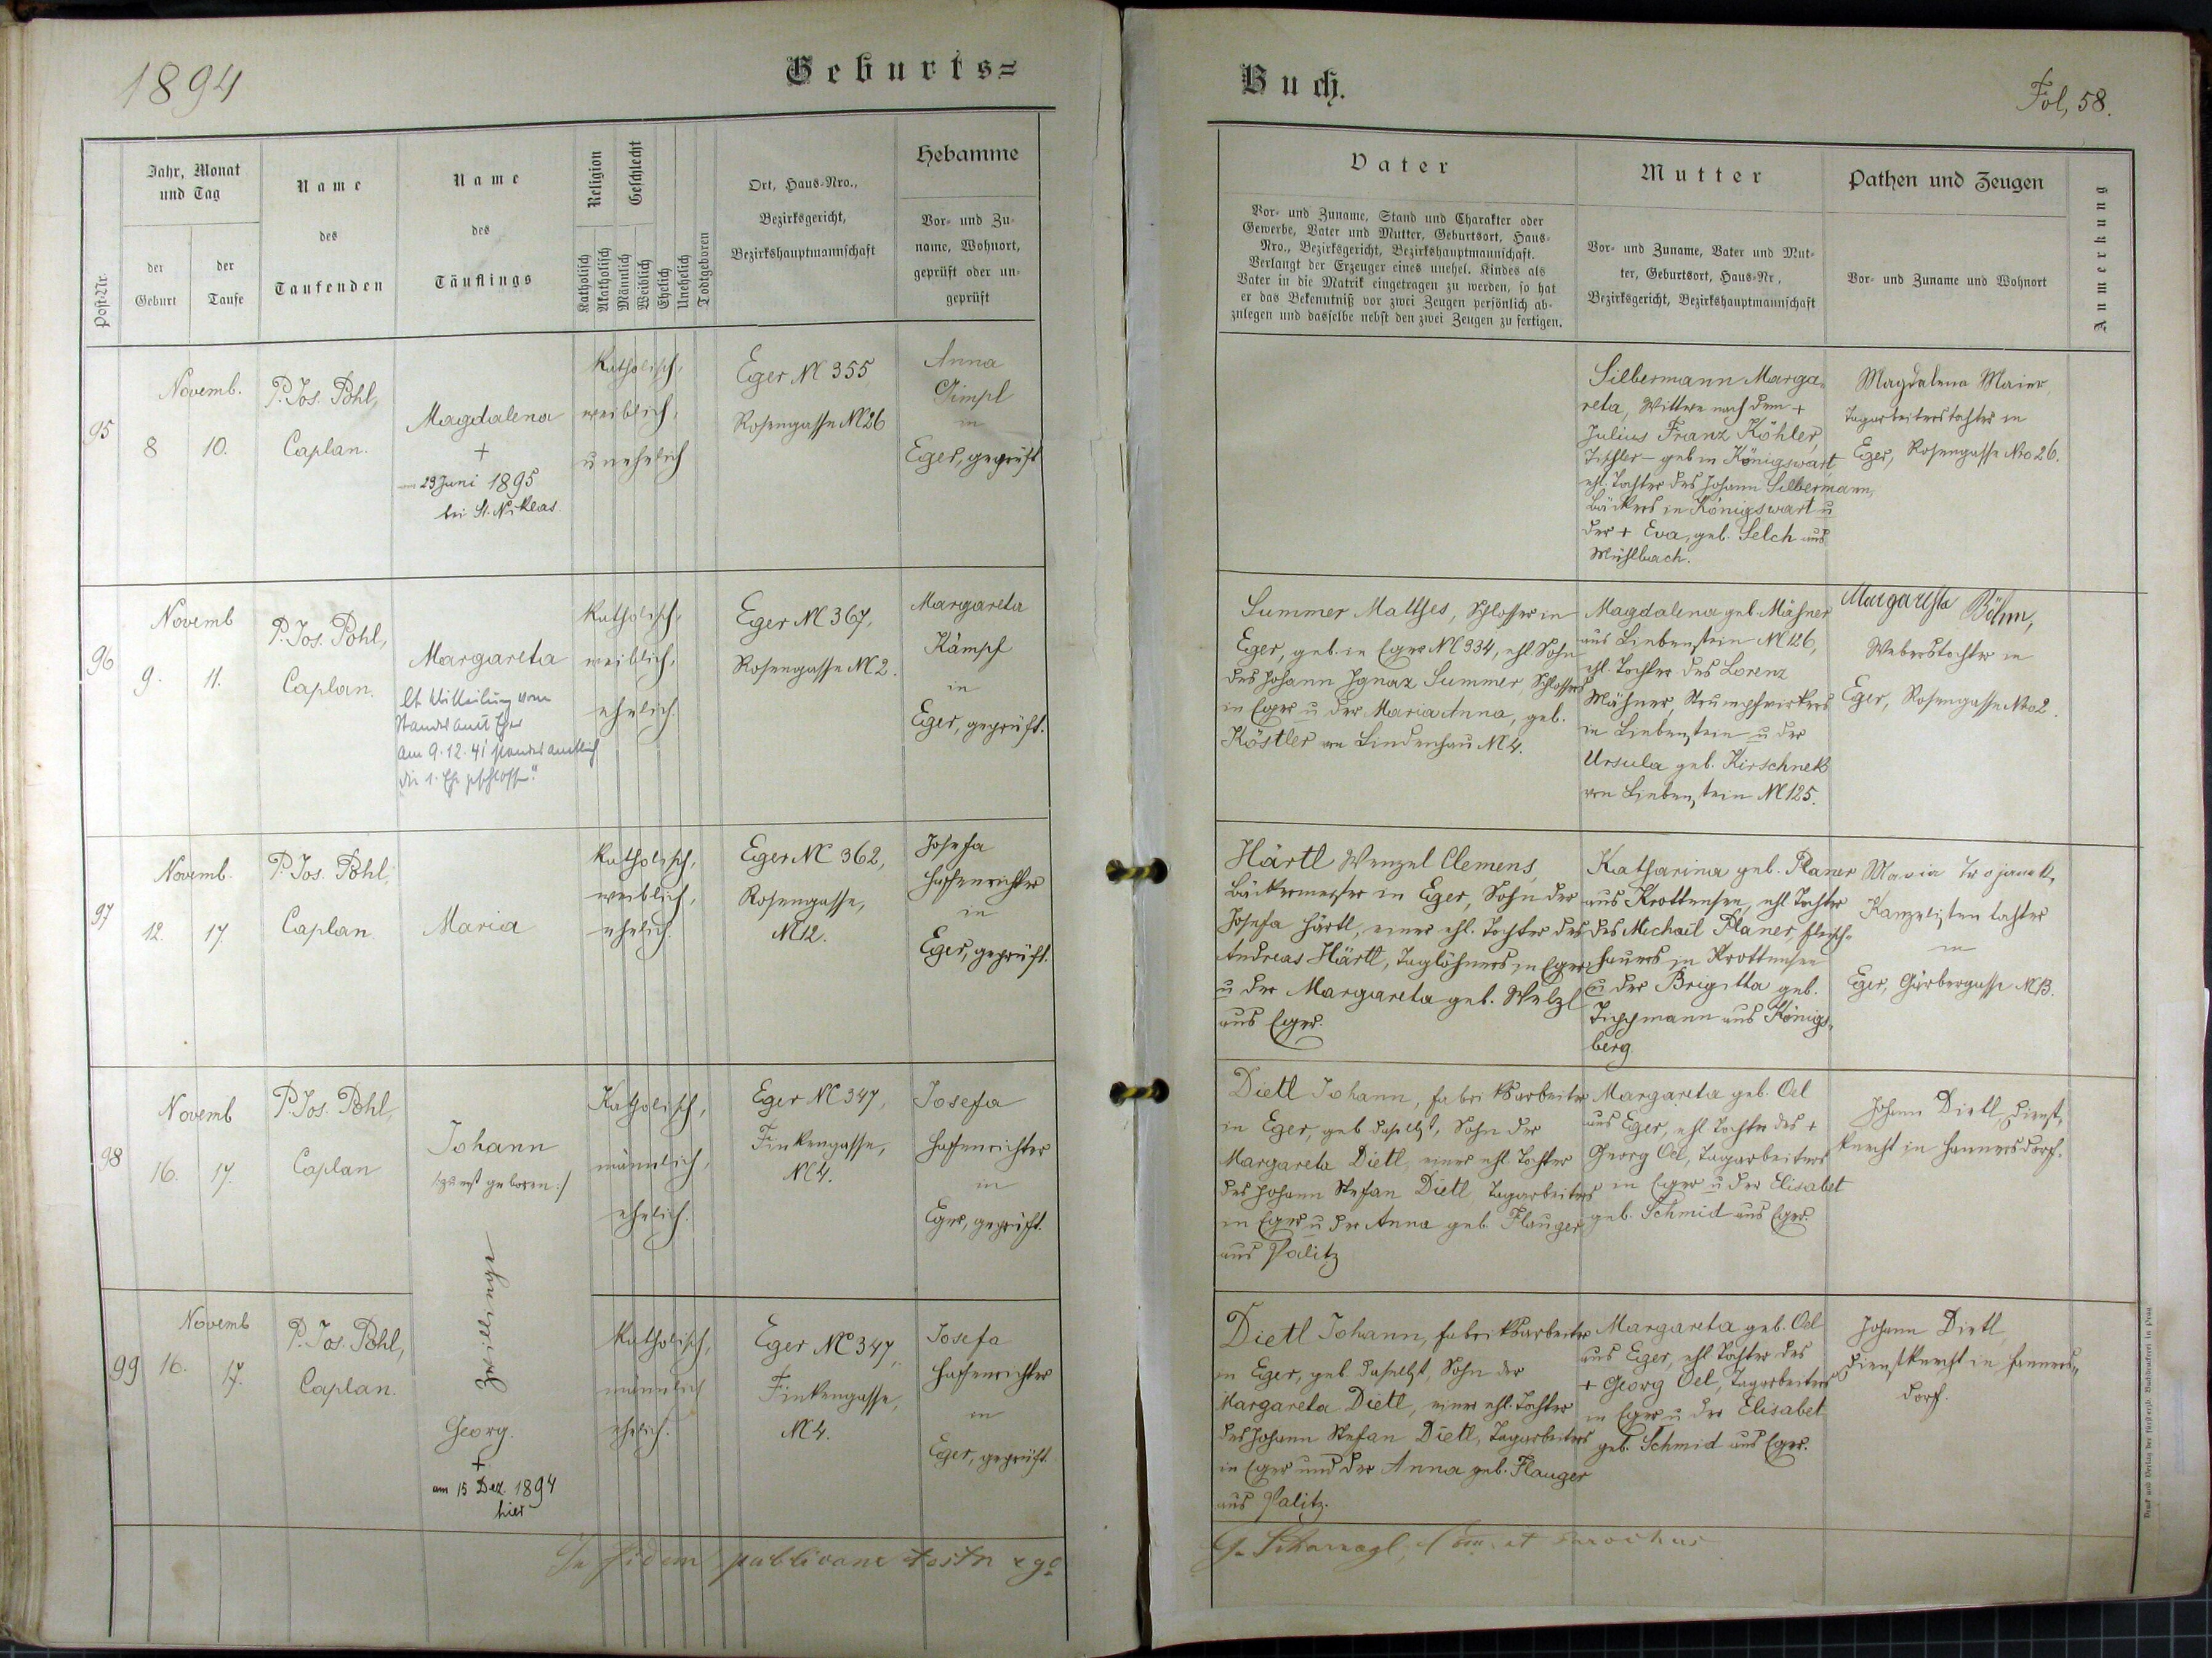 1894
Geburts=
Post-Nr.
Jahr, Monat
und Tag
der
Geburt
der
Taufe
Name
des
Taufenden
Name
des
Täuflings
Religion
Geschlecht
Katholisch
Akatholisch
Männlich
Weiblich
Ehelich
Unehelich
Todtgeboren
Ort, Haus-Nro.,
Bezirksgericht,
Bezirkshauptmannschaft
Hebamme
Vor- und Zu-
name, Wohnort,
geprüft oder un-
geprüft
95
Novemb.
8 10.
P. Jos. Pohl,
Caplan.
Magdalena
+
am 29 Juni 1895
bei St. Niklas
Katholisch,
weiblich,
unehelich
Eger N 355
Rosengasse N 26
Anna
Gimpl
in
Eger, geprüft
96
Novemb
9. 11.
P. Jos. Pohl,
Caplan.
Margareta
lt Mitteilung vom
Standesamt Eger
am 9.12.41 standesamtlich
"die 1. Ehe geschlossen."
Katholisch,
weiblich,
ehelich.
Eger N 367,
Rosengasse N 2.
Margareta
Kämpf
in
Eger, geprüft.
97
Novemb.
12. 17.
P. Jos. Pohl,
Caplan.
Maria
Katholisch,
weiblich,
ehelich.
Eger N 362,
Rosengasse,
N 12.
Josefa
Hassenrichter
in
Eger, geprüft.
98
Novemb
16. 17.
P. Jos. Pohl,
Caplan
Johann
/:zuerst geboren:/
Katholisch,
männlich,
ehelich.
Eger N 347,
Finkengasse,
N 4.
Josefa
Hassenrichter
in
Eger, geprüft.
Zwillinge
99
Novemb
16. 17.
P. Jos. Pohl,
Caplan.
Georg.
+
am 15 Dez. 1894
hier
Katholisch,
männlich
ehelich.
Eger N 347,
Finkengasse,
N 4.
Josefa
Hassenrichter
in
Eger, geprüft.
In fidem publicam testor ego
Buch.
Fol, 58.
Vater
Vor- und Zuname, Stand und Charakter oder
Gewerbe, Vater und Mutter, Geburtsort, Haus-
Nro., Bezirksgericht, Bezirkshauptmannschaft.
Verlangt der Erzeuger eines unehel. Kindes als
Vater in die Matrik eingetragen zu werden, so hat
er das Bekenntniß vor zwei Zeugen persönlich ab-
zulegen und dasselbe nebst den zwei Zeugen zu fertigen.
Mutter
Vor- und Zuname, Vater und Mut-
ter, Geburtsort, Haus-Nr,
Bezirksgericht, Bezirkshauptmannschaft
Pathen und Zeugen
Vor- und Zuname und Wohnort
Anmerkung
Silbermann Marga-
reta, Wittwe nach dem +
Julius Franz Köhler,
Tischler – geb in Königswart
ehl. Tochter des Johann Silbermann,
Bäckers in Königswart u
der + Eva, geb. Selch aus
Mühlbach.
Magdalena Maier
Tagarbeiterstochter in
Eger, Rosengasse Nro 26.
Summer Mathes, Schlosser in
Eger, geb. in Eger N 334, ehl. Sohn
des Johann Ignaz Summer, Schlossers
in Eger u der Maria Anna, geb.
Köstler von Lindenhau N 4.
Magdalena geb. Mähner
aus Liebenstein N 126,
ehl. Tochter des Lorenz
Mähner, Strumpfwirkers
in Liebenstein u der
Ursula geb. Kirschnek
von Liebenstein N 125.
Margaretha Böhm,
Weberstochter in
Eger, Rosengasse Nro 2.
Härtl Wenzel Clemens,
Bäckermeister in Eger, Sohn der
Josefa Härtl, einer ehl. Tochter des
Andreas Härtl, Taglöhners in Eger
u der Margareta geb. Welzl
aus Eger.
Katharina geb. Planer
aus Krottensee, ehl Tochter
des Michael Planer, Fleisch-
hauers in Krottensee
u der Brigitta geb.
aus Königs-
berg.
Maria Trojanek,
Kanzelistentochter
in
Eger, Gärbergasse N 13.
Dietl Johann, Fabriksarbeiter
in Eger, geb daselbst, Sohn der
Margareta Dietl, einer ehl. Tochter
des Johann Stefan Dietl, Tagarbeiters
in Eger u der Anna geb. Flauger
aus Palitz
Margareta geb. Oel
aus Eger, ehl Tochter des +
Georg Oel, Tagarbeiters
in Eger u der Elisabet
geb. Schmid aus Eger.
Johann Dietl, Dienst-
knecht in Honnersdorf.
Dietl Johann, Fabriksarbeiter
in Eger, geb. daselbst, Sohn der
Margareta Dietl, einer ehl. Tochter
des Johann Stefan Dietl, Tagarbeiters
in Eger und der Anna geb. Flauger
aus Palitz.
Margareta geb. Oel
aus Eger, ehl Tochter des
+ Georg Oel, Tagarbeiters
in Eger u der Elisabet
geb. Schmid aus Eger.
Johann Dietl,
Dienstknecht in Honners-
dorf.
et parochus
Druck und Verlag der fürsterzb. Buchdruckerei in Prag